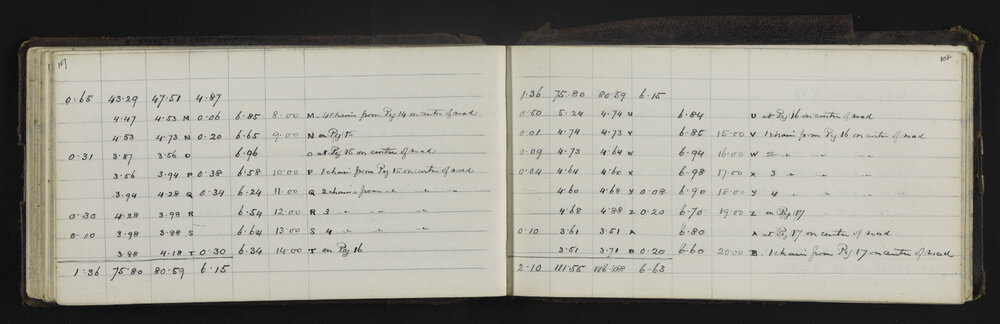 107
0.65 43.29 47.51 4.87
4.47 4.53 M 0.06 6.85 8.00 M. 4 chains from Peg 14 on centre of road
4.53 4.73 N 0.20 6.65 9.00 N on Peg 15
0.31 3.87 3.56 O 6.96 O at Peg 15 on centre of road
3.56 3.94 P 0.38 6.58 10.00 P 1 chain from Peg 15 on centre of road
3.94 4.28 Q 0.34 6.24 11.00 Q 2 chains from " " " "
0.30 4.28 3.98 R 6.54 12.00 R 3 " " "
0.10 3.98 3.88 S 6.64 13.00 S 4 " " "
3.88 4.18 T 0.30 6.34 14.00 T on Peg 16
1.36 75.80 80.59 6.15
108
1.36 75.80 80.59 6.15
0.50 5.24 4.74 U 6.84 U at Peg 16 on centre of road
0.01 4.74 4.73 V 6.85 15.00 V 1 chain from Peg 16 on centre of road
0.09 4.73 4.64 W 6.94 16.00 W 2 " " " "
0.04 4.64 4.60 X 6.98 17.00 X 3 " " " "
4.60 4.68 Y 0.08 6.90 18.00 Y 4 " " "
4.68 4.88 Z 0.20 6.70 19.00 Z on Peg 17
0.10 3.61 3.51 A 6.80 A at Peg 17 on centre of road
3.51 3.71 B 0.20 6.60 20.00 B. 1 chain from Peg 17 on centre of road
2.10 111.55 6.63